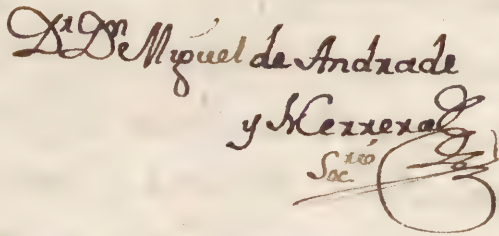 Dr Dn Miguel de Andrade
y Herrera
Socrio